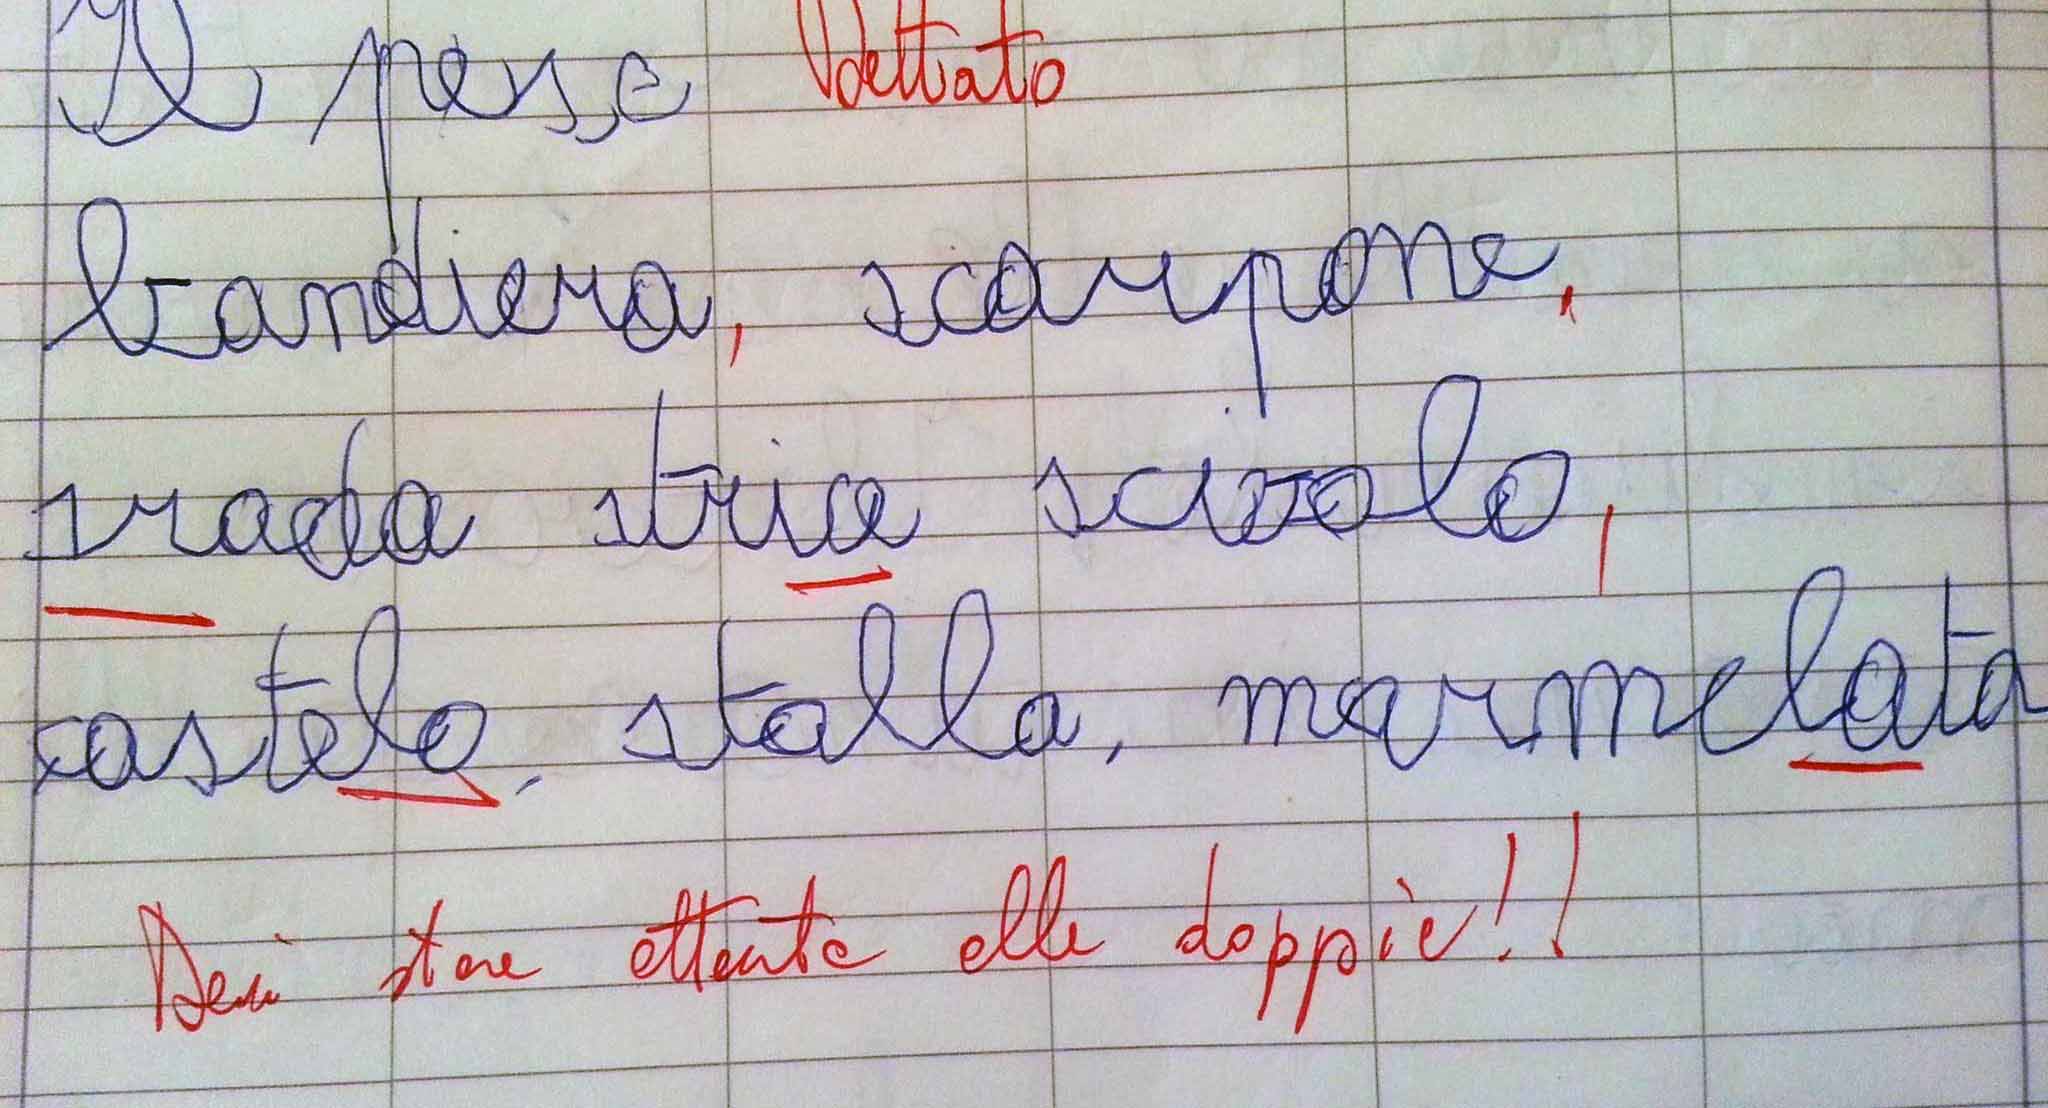 Il pese Dettato
bandiera, scarpone,
srada strice scivolo,
castelo, stalla, marmelata
Devi stare attenta alle doppie!!